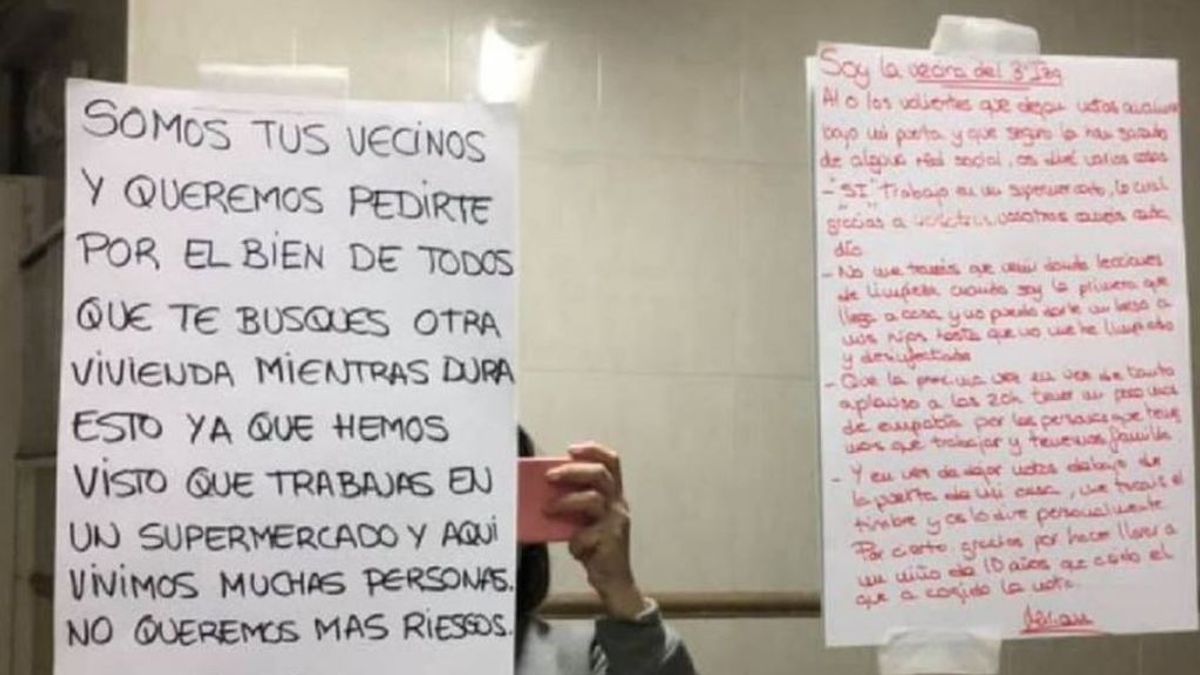 SOMOS TUS VECINOS
Y QUEREMOS PEDIRTE
POR EL BIEN DE TODOS
QUE TE BUSQUES OTRA
VIVIENDA MIENTRAS DURA
ESTO YA QUE HEMOS
VISTO QUE TRABAJAS EN
UN SUPERMERCADO Y AQUI
VIVIMOS MUCHAS PERSONAS.
NO QUEREMOS MAS RIESGOS.
Soy la vecina del 3º Izq
Al o los valientes que dejan notas
bajo mi puerta y que seguro la han sacado
de alguna red social, os diré varias cosas
- "SI" Trabajo en un supermercado, lo cual
gracias a vosotros coméis cada
día
- No me tenéis que venir dando lecciones
de limpieza cuando soy la primera que
llega a casa y no puedo darle un beso a
mis hijos hasta que no me he limpiado
y desinfectado
- Que la próxima vez en vez de tanto
aplauso a las 20h tener un poco más
de empatía por las personas que tene
mos que trabajar y tenemos familia
- Y en vez de dejar notas debajo de
la puerta de mi casa, me tocais el
timbre y os lo dire personalmente
Por cierto, gracias por hacer llorar a
un niño de 10 años que a sido el
que a cogido la nota.